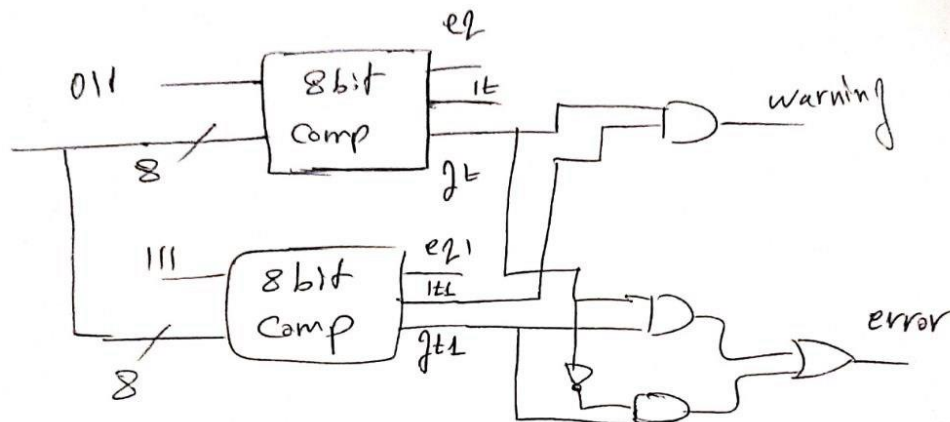 eq
011
8bit
comp
lt
gt
8
warning
111
8bit
comp
eq1
lt1
gt1
8
error